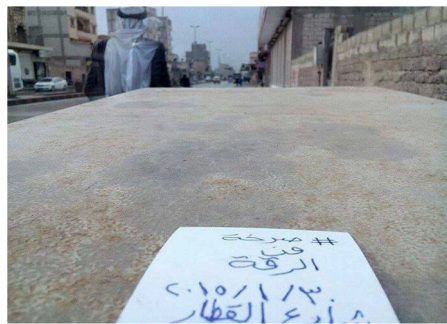 # صرخة
من
الرقة
٢٠١٥/١/٣٠
شارع القطار